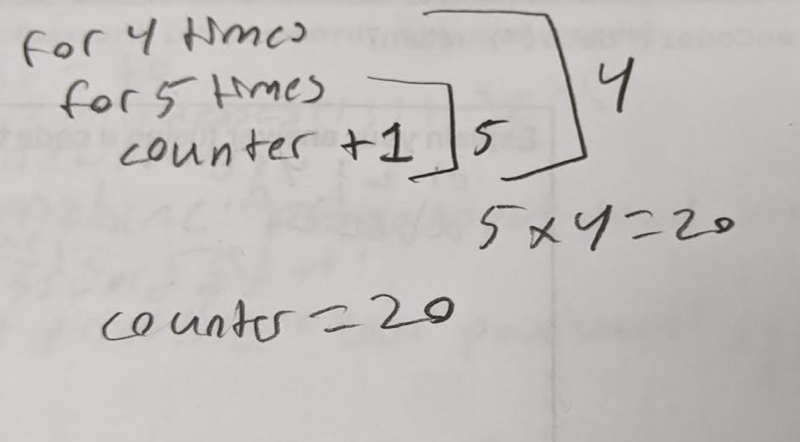 for 4 times
for 5 times
counter +1 5 4
5 x 4 = 20
counter = 20